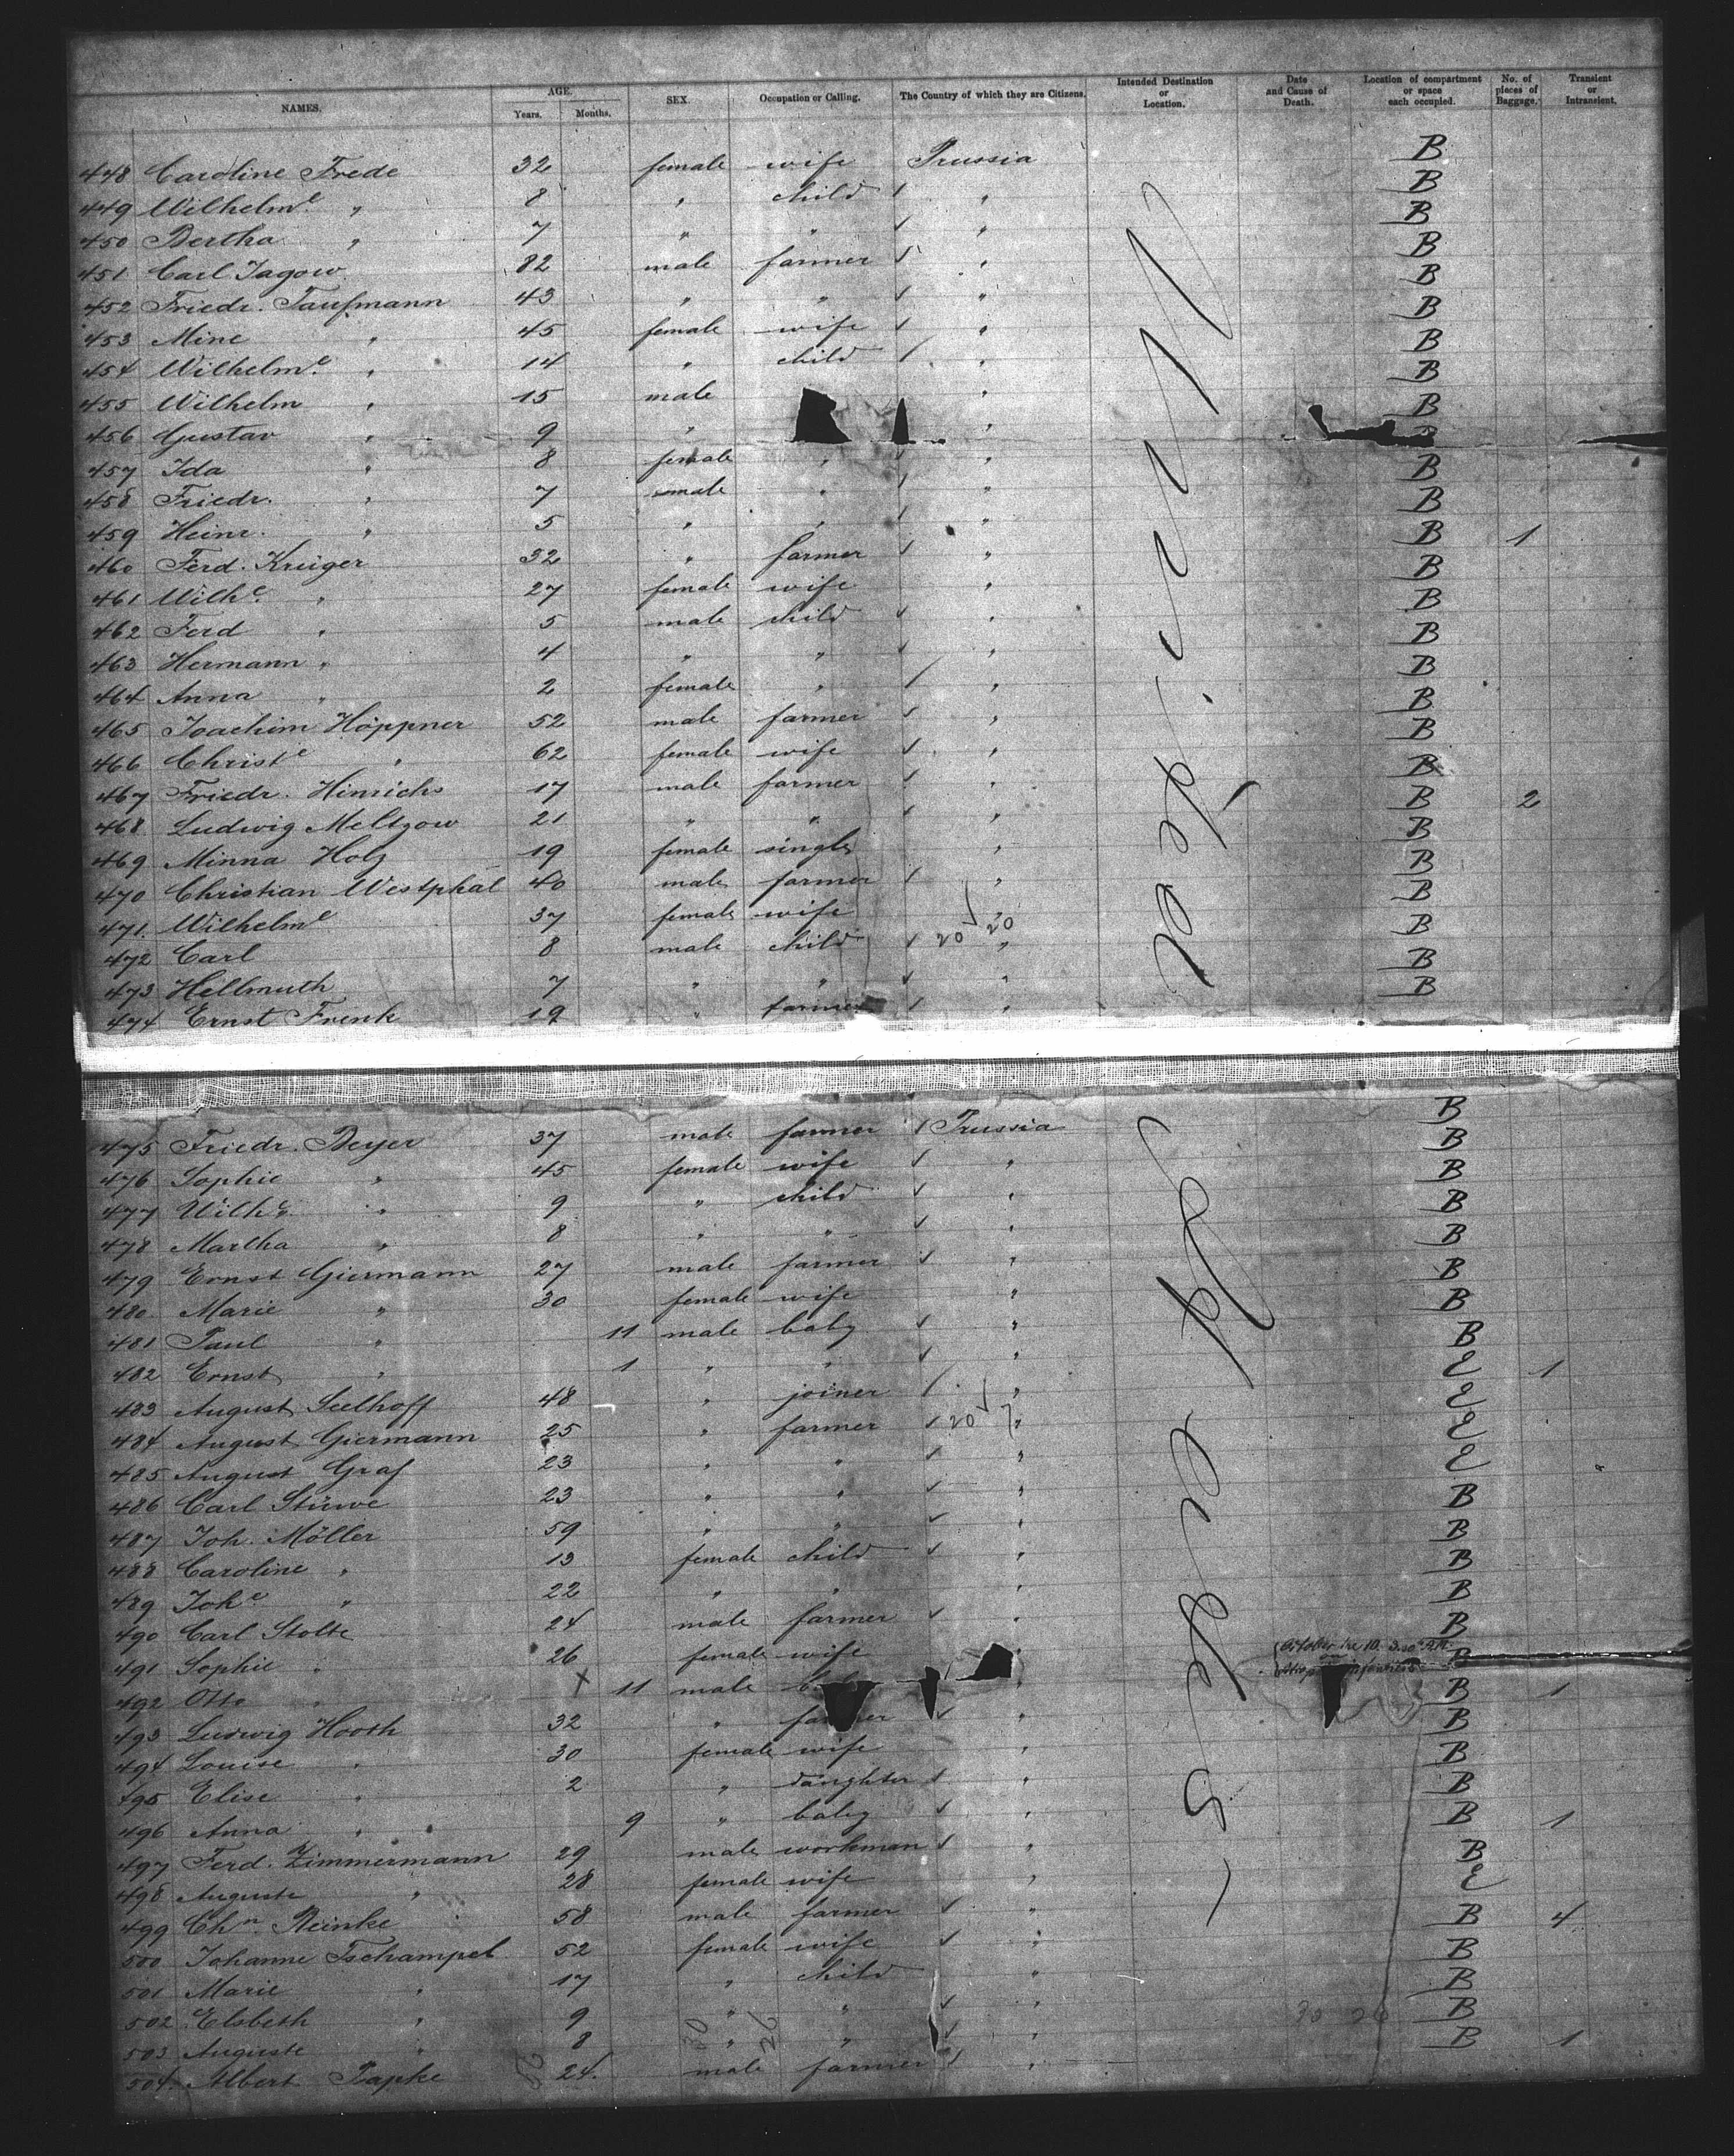 NAMES. AGE. Years. Months. SEX. Occupation or Calling. The Country of which they are Citizens. Intended Destination or Location. Date and Cause of Death. Location of compartment or space each occupied. No. of pieces of Baggage. Transient or Intransient.
448 Caroline Frede 32 female wife Prussia B
449 Wilhelme " 8 " child " B
450 Bertha " 7 " " " B
451 Carl Jagow 82 male farmer " B
452 Friedr. Taufmann 43 " " " B
453 Mine " 45 female wife " B
454 Wilhelme " 14 " child " B
455 Wilhelm " 15 male " B
456 Gustav " 9 " " B
457 Ida " 8 female " " B
458 Friedr. " 7 male " " B
459 Heinr. " 5 " " " B 1
460 Ferd. Krüger 32 " farmer " B
461 Wilhe " 27 female wife " B
462 Ferd " 5 male child " B
463 Hermann " 4 " " " B
464 Anna " 2 female " " B
465 Joachim Höppner 52 male farmer " B
466 Christe " 62 female wife " B
467 Friedr. Hinrichs 17 male farmer " B
468 Ludwig Meltzow 21 " " " B 2
469 Minna Holz 19 female single " B
470 Christian Westphal 40 male farmer " B
471 Wilhelme 37 female wife B
472 Carl 8 male child 20 20 " B
473 Hellmuth 7 " " " B
474 Ernst Frenk 19 " farmer " B
475 Friedr. Beyer 37 male farmer Prussia B
476 Sophie " 45 female wife " B
477 Wilhe " 9 " child " B
478 Martha " 8 " " " B
479 Ernst Giermann 27 male farmer " B
480 Marie " 30 female wife " B
481 Paul " 11 male baby " B
482 Ernst " 1 " " " B
483 August Seelhoff 48 " joiner " E 1
484 August Giermann 25 " farmer 20 7 " E
485 August Graf 23 " " " E
486 Carl Stüwe 23 " " " E
487 Joh. Möller 59 " " " B
488 Caroline " 13 female child " B
489 Johe " 22 " " " B
490 Carl Stolte 24 male farmer " B
491 Sophie " 26 female wife B
492 Otto " 11 male October the 10 B 1
493 Ludwig Hooth 32 " farmer " B
494 Louise " 30 female wife " B
495 Elise " 2 " daughter " B
496 Anna " 9 " baby " B 1
497 Ferd. Zimmermann 29 male workman " B
498 Auguste " 28 female wife " E
499 Chn Reinke 58 male farmer " B 4
500 Johanne Tschampel 52 female wife " B
501 Marie " 17 " child " B
502 Elsbeth " 9 " " " B
503 Auguste " 8 " " " B 1
504 Albert Papke 24 male farmer "